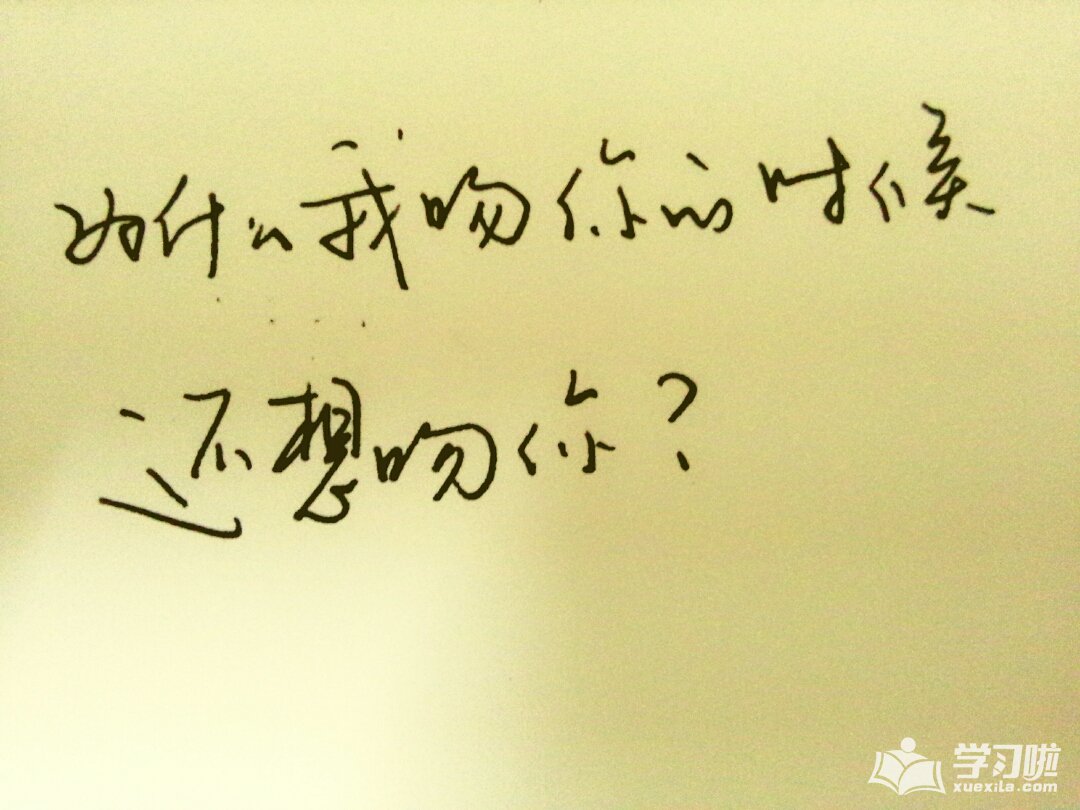 为什么我吻你的时候
还想吻你？
学习啦
xuexila.com